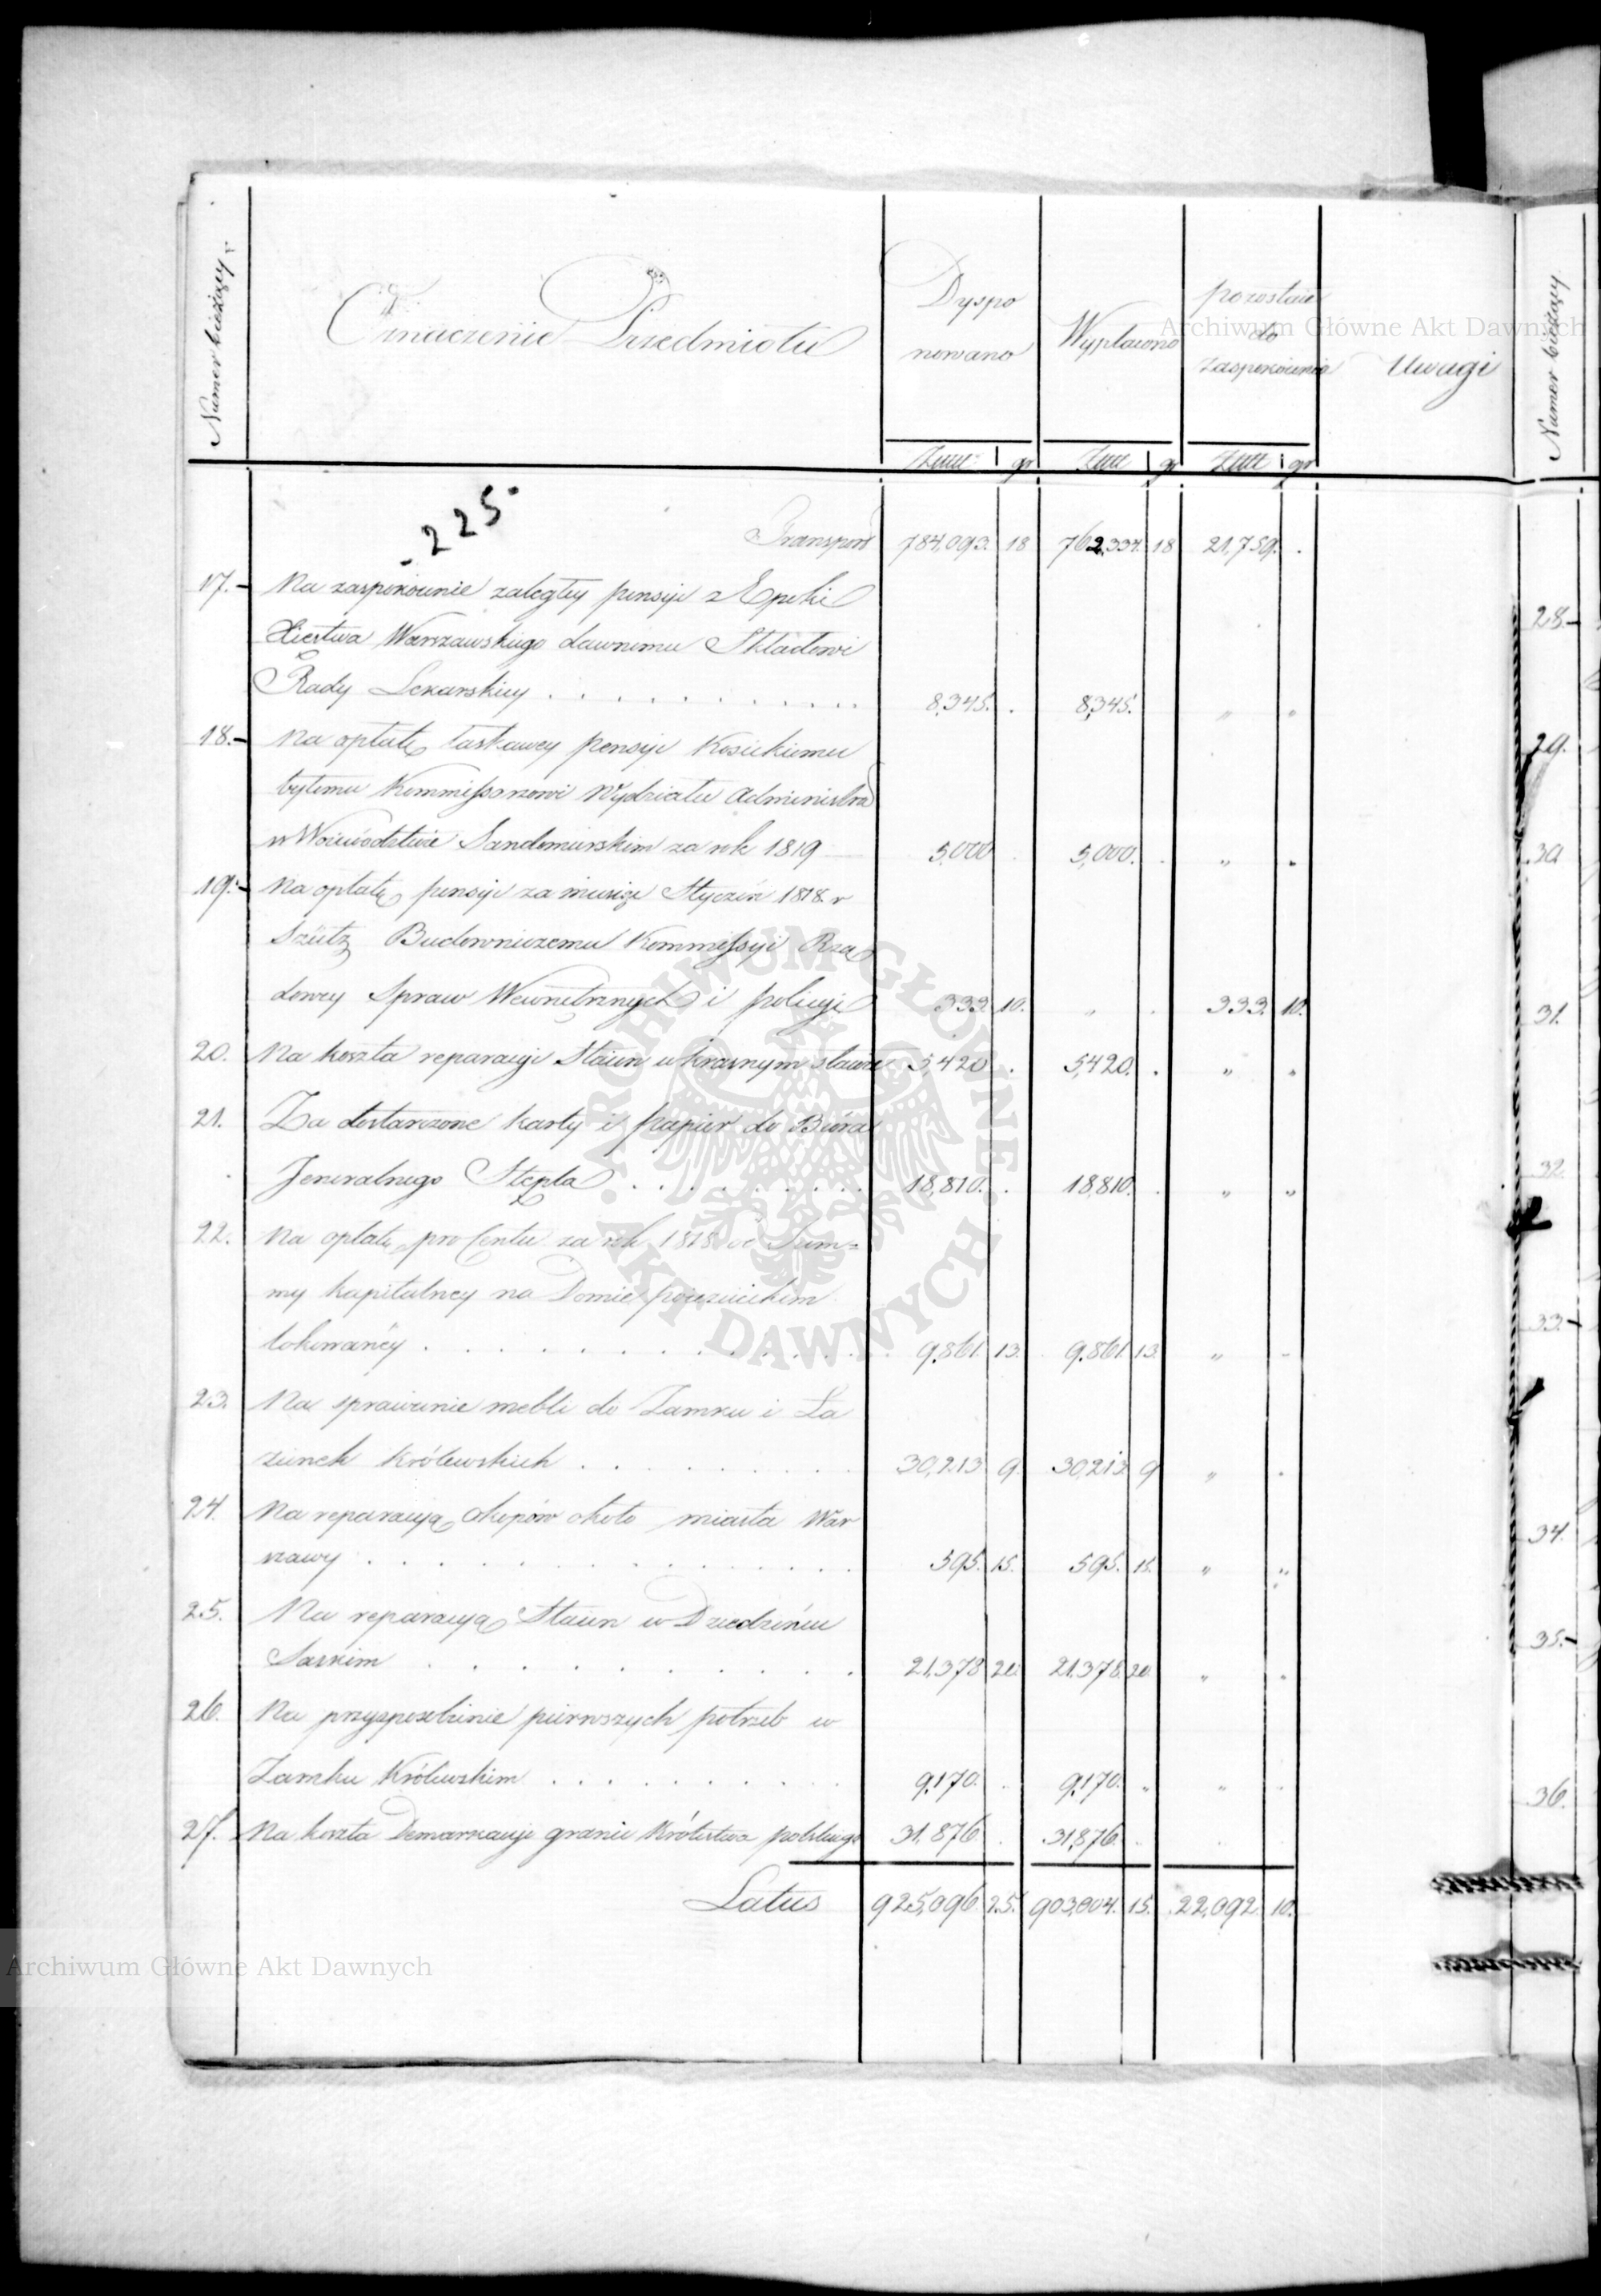 Numer bieżący
Oznaczenie Przedmiotu
Dyspo
nowano
Wypłacono
pozostaie
do
zaspokoienia
Uwagi
Numer bieżący
Złłł gr Złłł gr Złłł gr
225
Transport 784,093. 18 762,334. 18 21,759. .
17. Na zaspokoienie zaległey pensyi z Epoki
Xięstwa Warszawskiego dawnemu Składowi
Rady Lekarskiey . . . . . . . . . . 8,345. . 8,345. " "
18. Na opłatę łaskawey pensyi Kosickiemu
byłemu Kommissarzowi Wydziału Administra
w Woiewództwie Sandomirskim za rok 1819 5,000 . 5,000. . " "
19. Na opłatę pensyi za miesiąc Styczeń 1818. r
Szütz Budowniczemu Kommissyi Rzą
dowey Spraw Wewnętrznych i policyi 333. 10. " . 333. 10.
20. Na koszta reparacyi Staien w krasnym stawie 5,420 . 5,420. . " "
21. Za dostarczone karty i papier do Bióra
Jeneralnego Stępla . . . . . . . . 18,810. . 18,810. . " "
22. Na opłatę procentu za rok 1818 od Sum=
my kapitalney na Domie poiezuickim
lokowanéy . . . . . . . . . . 9,861. 13. 9,861. 13. " "
23. Na sprawienie mebli do Zamku i Ła
zienek Królewskich . . . . . . . 30,213 9. 30,213 9 " .
24. Na reparacyą okopów około miasta War
szawy . . . . . . . . . . . 595. 15. 595. 15. " "
25. Na reparacyą Staien w Dziedzińcu
Saskim . . . . . . . . . . 21,378 20. 21,378. 20 " .
26. Na przysposobienie pierwszych potrzeb w
Zamku Królewskim . . . . . . . . 9,170. . 9,170. " " .
27. Na koszta Demarkacyi granic Królestwa polskiego 31,876 . 31,876. .
Latus 925,096 25. 903,004. 15. 22,092 10.
28.
29.
30
31.
32
33.
34.
35.
36.
Archiwum Główne Akt Dawnych
ARCHIWUM GŁÓWNE · AKT DAWNYCH ·
Archiwum Główne Akt Dawnych